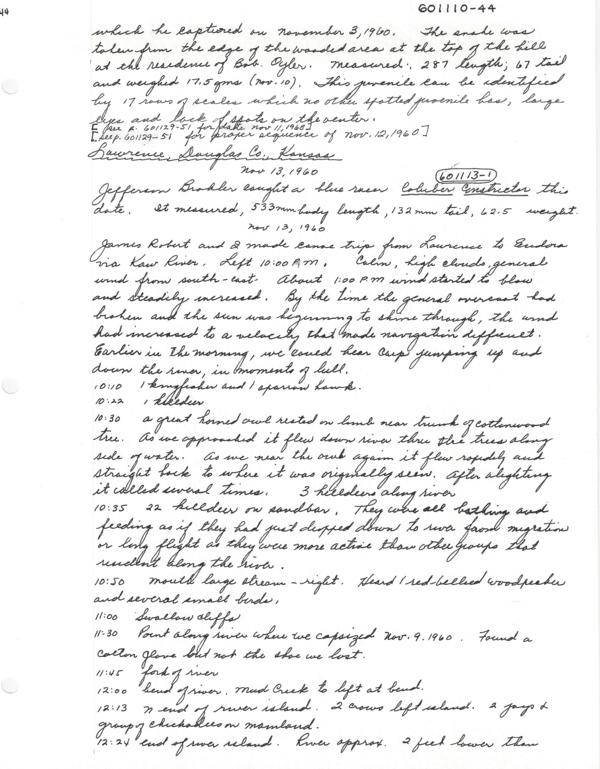 44
601110-44
which he captured on November 3, 1960. The snake was
taken from the edge of the wooded area at the top of the hill
at the residence of Bob Oyler. Measured: 287 length; 67 tail
and weighed 17.5 gms (Nov. 10). This juvenile can be identified
by 17 rows of scales which no other spotted juvenile has, large
eyes and lack of spots on the venter.
[see p. 601129-51 for data Nov 11, 1960]
[see p. 601129-51 for proper sequence of Nov. 12, 1960]
Lawrence, Douglas Co., Kansas
Nov 13, 1960
601113-1
Jefferson caught a blue racer Coluber Constrictor this
date. It measured, 533mm body length, 132 mm tail, 62.5 weight.
Nov 13, 1960
James Robert and I made canoe trip from Lawrence to Eudora
via Kaw River. Left 10:00 A.M. Calm, high clouds, general
wind from south-east. About 1:00 P.M wind started to blow
and steadily increased. By the time the general overcast had
broken and the sun was beginning to shine through, the wind
had increased to a velocity that made navigation difficult.
Earlier in the morning, we could hear Carp jumping up and
down the river, in moments of lull.
10:10 1 kingfisher and 1 sparrow hawk.
10:22 1 killdeer
10:30 a great horned owl rested on limb near trunk of cottonwood
tree. As we approached it flew down river thru the trees along
side of water. As we near the owl again it flew rapidly and
straight back to where it was originally seen. After alighting
it called several times. 3 killdeers along river
10:35 22 killdeer on sandbar. They were all bathing and
feeding as if they had just dropped down to river from migration
or long flight as they were more active than other groups that
resident along the river.
10:50 mouth large stream - right. Heard 1 red-bellied woodpecker
and several small birds.
11:00 Swallow cliffs
11:30 Point along river where we capsized Nov. 9. 1960. Found a
cotton glove but not the shoe we lost.
11:45 fork of river
12:00 bend of river. Mud Creek to left at bend.
12:13 N end of river island. 2 crows left island. 2 jays &
group of chickadees on mainland.
12:24 end of river island. River approx. 2 feet lower than